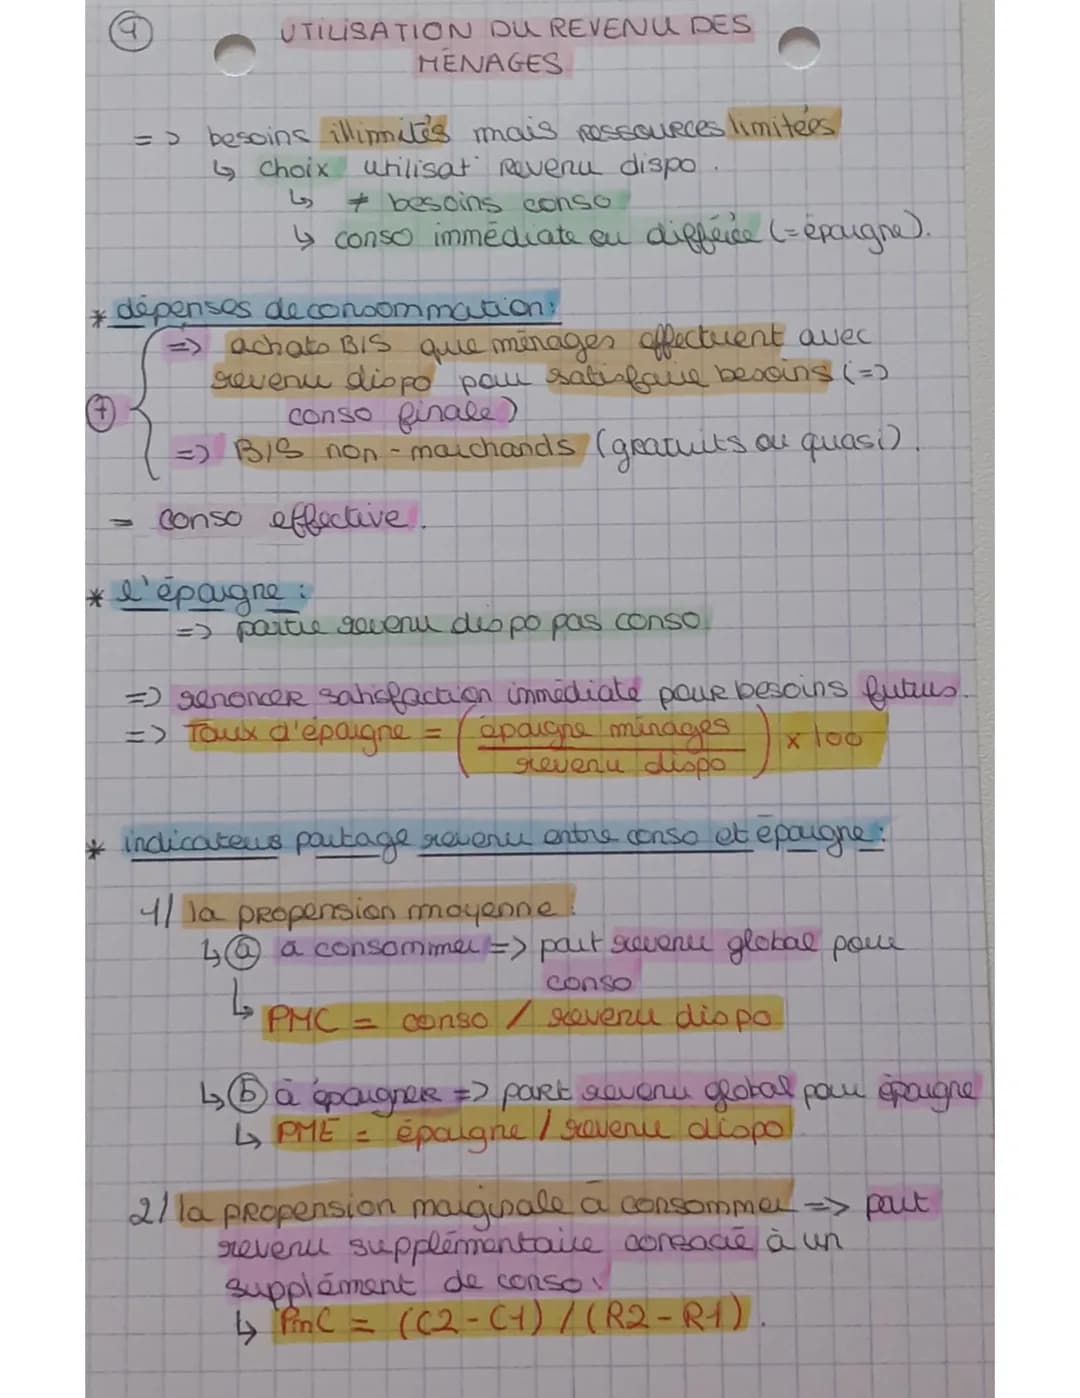 9
UTILISATION DU REVENU DES
MÉNAGES
=> besoins illimités mais ressources limitées
↳ choix utilisat° revenu dispo.
↳ ≠ besoins conso
↳ conso immédiate ou différée (= épargne).
* dépenses de consommation:
=> achats B/S que ménages effectuent avec
revenu dispo pour satisfaire besoins (=>
conso finale)
+
=> B/S non-marchands (gratuits ou quasi).
= conso effective.
* l'épargne :
=> partie revenu dispo pas conso.
=> renoncer satisfaction immédiate pour besoins futurs.
=> Taux d'épargne = ( épargne ménages / revenu dispo ) x 100
* indicateurs partage revenu entre conso et épargne :
1/ la propension moyenne :
↳ (a) a consommer => part revenu global pour
conso
↳ PMC = conso / revenu dispo
↳ (b) à épargner => part revenu global pour épargne
↳ PME = épargne / revenu dispo
2/ la propension marginale à consommer => part
revenu supplémentaire consacré à un
supplément de conso.
↳ PmC = (C2-C1) / (R2-R1).